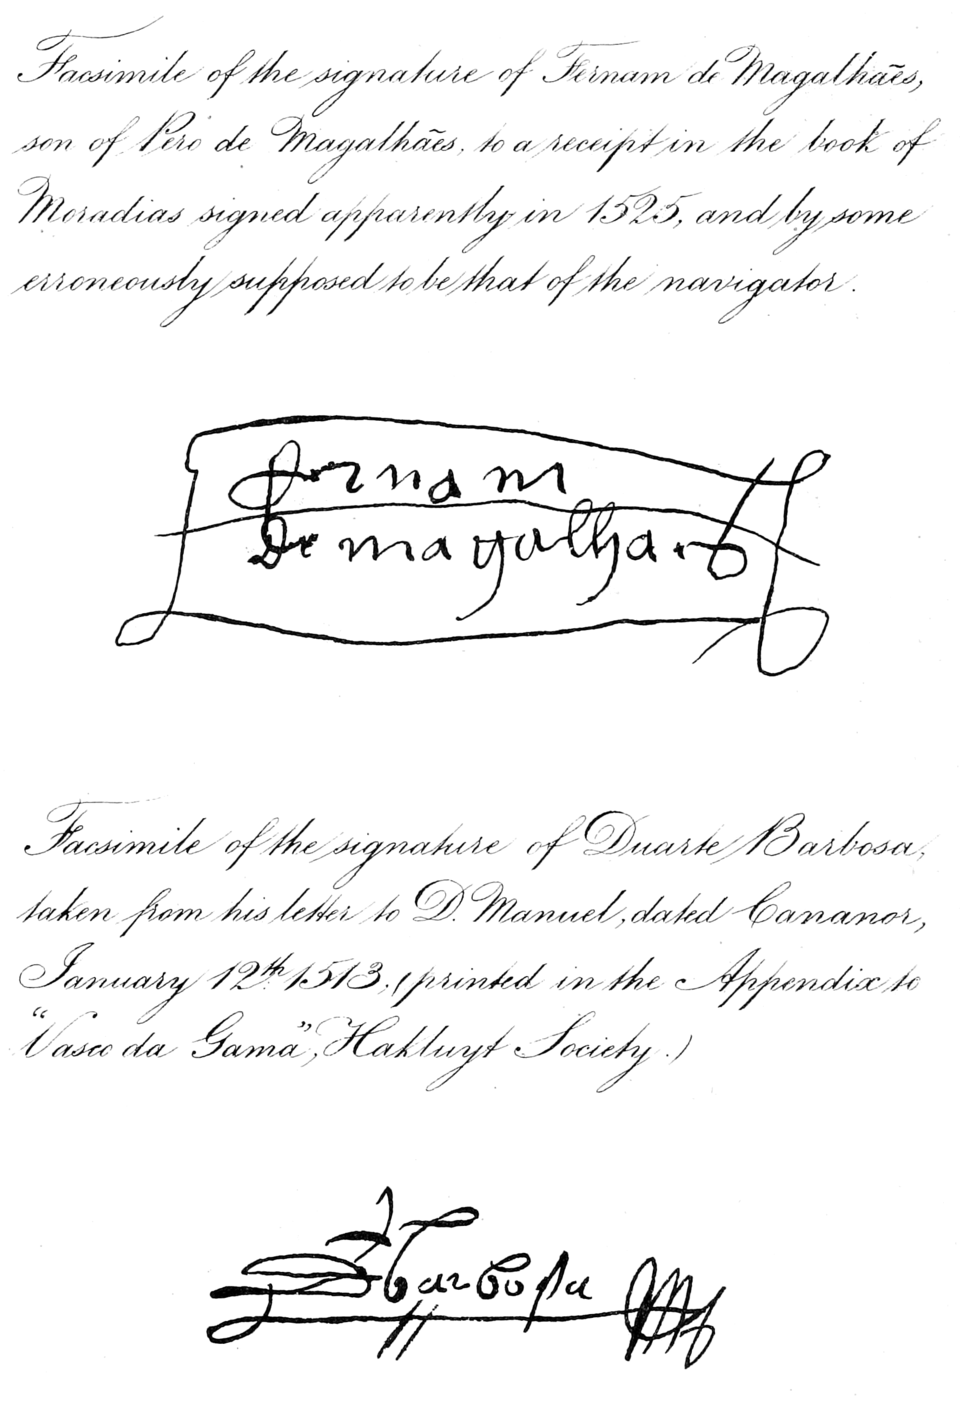 Facsimile of the signature of Fernam de Magalhães,
son of Pero de Magalhães, to a receipt in the book of
Moradias signed apparently in 1525, and by some
erroneously supposed to be that of the navigator.
Fernam
De magalhaes
Facsimile of the signature of Duarte Barbosa,
taken from his letter to D. Manuel, dated Cananor,
January 12th. 1513, (printed in the Appendix to
"Vasco da Gama", Hakluyt Society.)
Barbosa